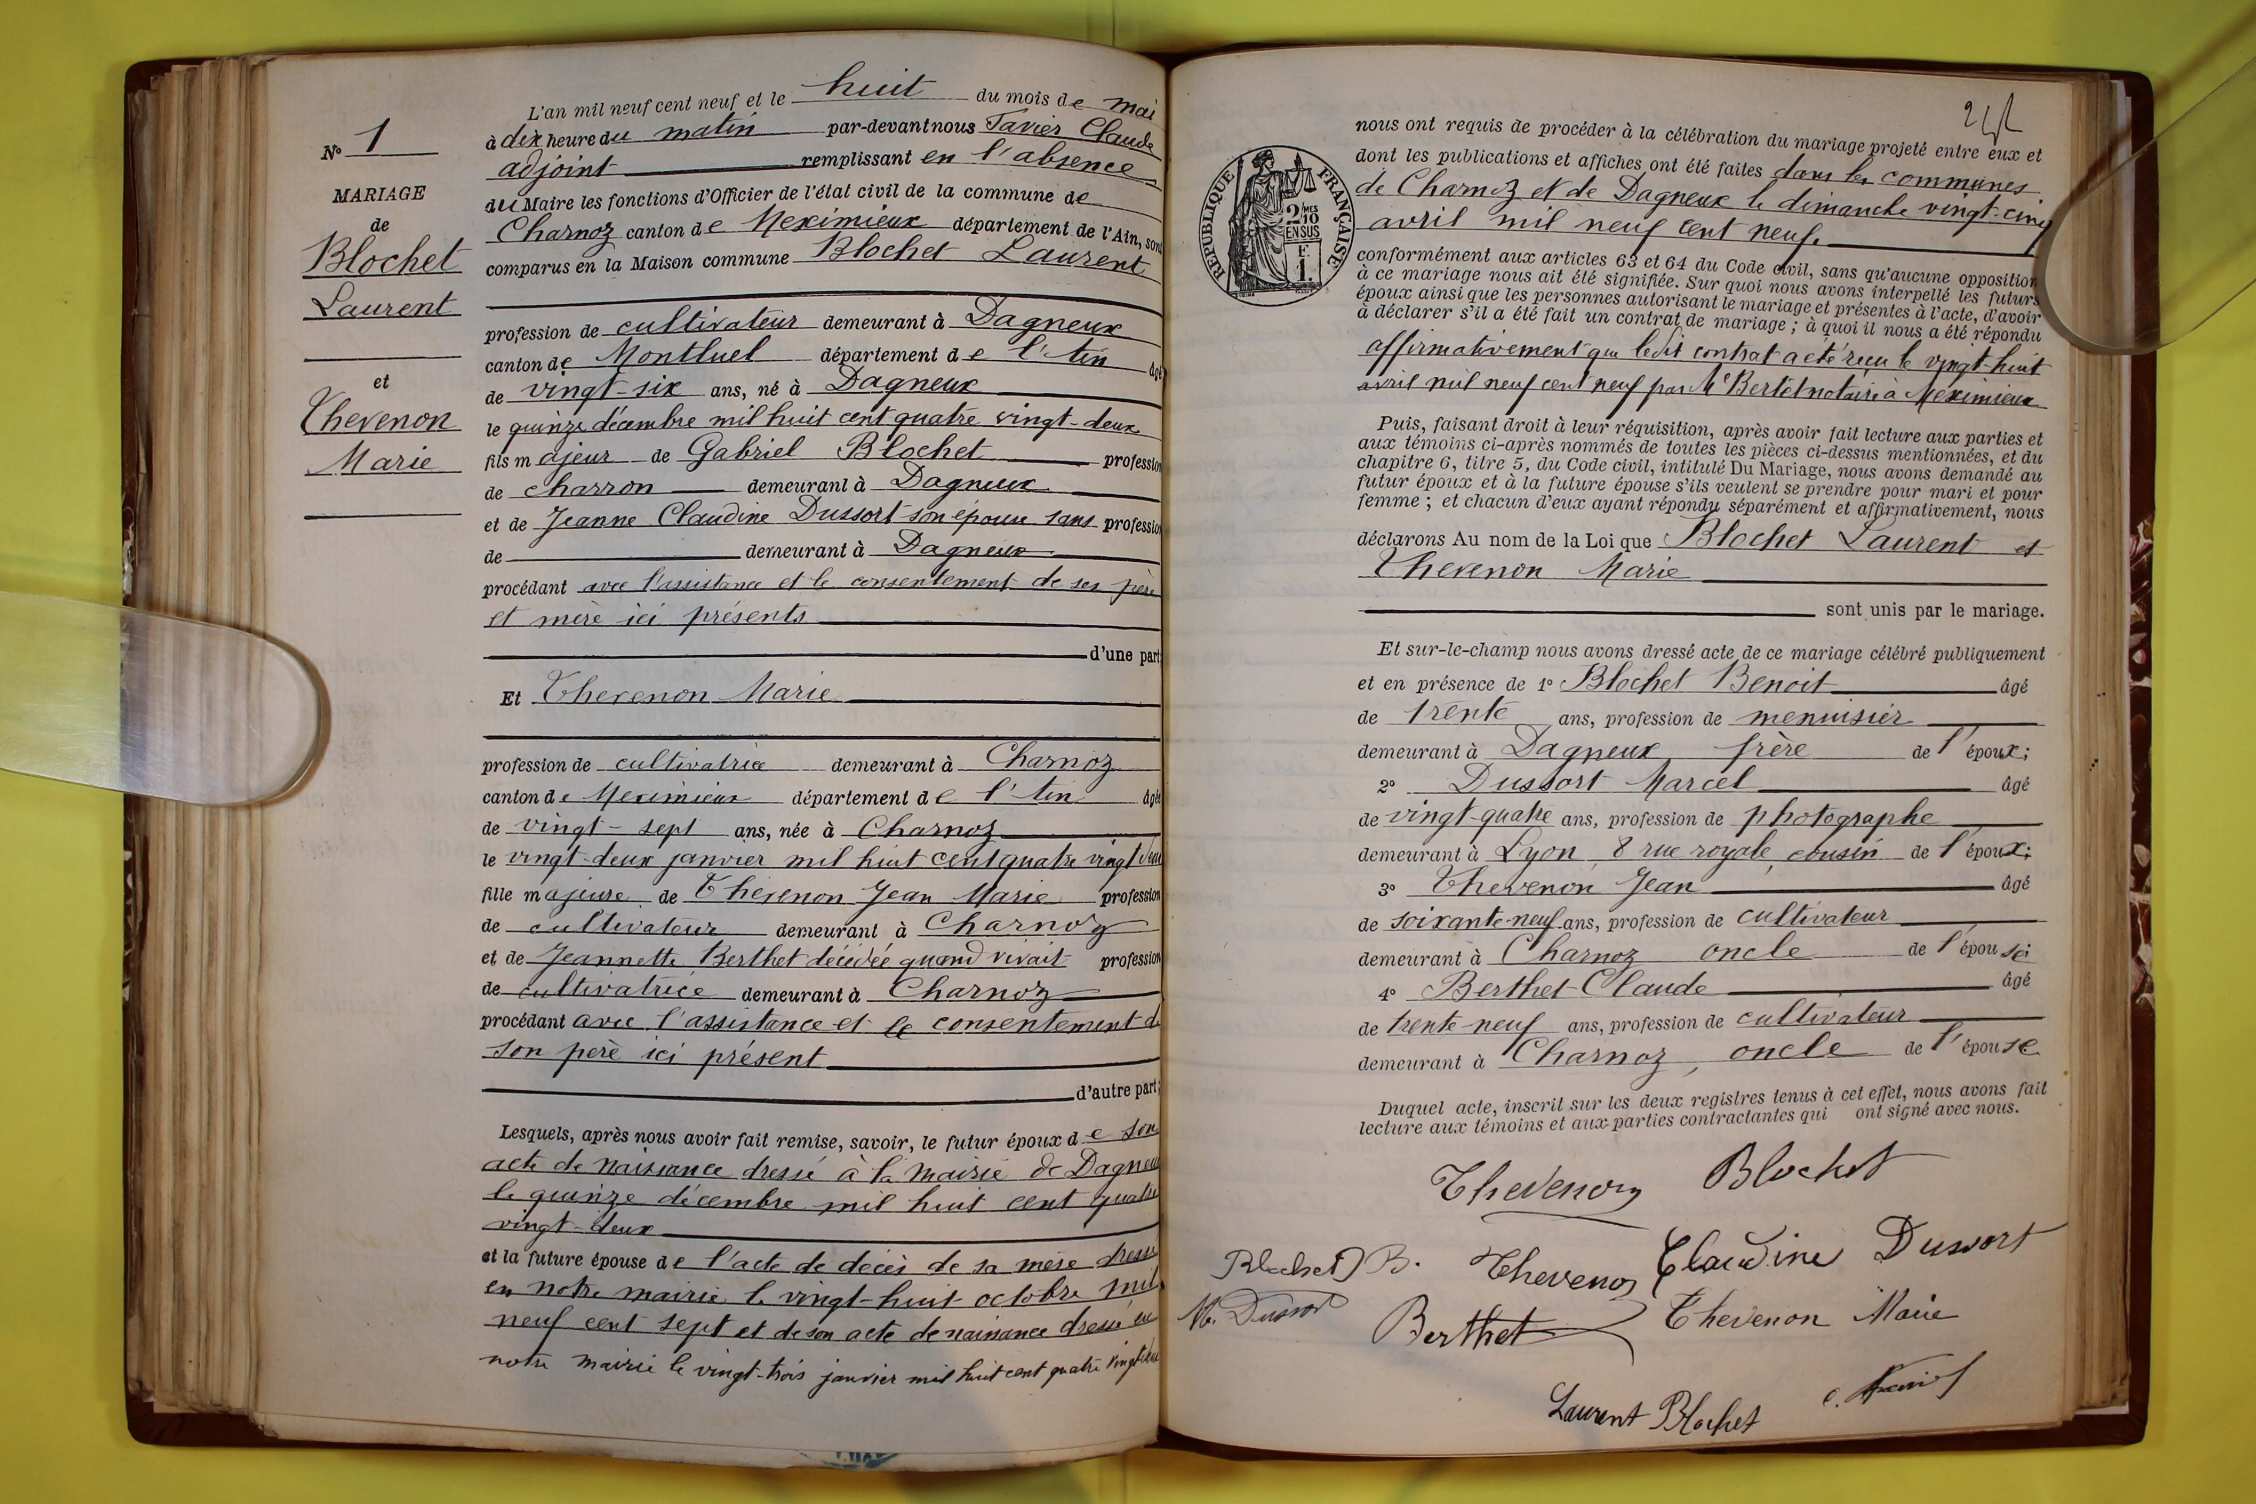 L'an mil neuf cent neuf et le huit du mois de mai
à dix heure du matin par-devant nous Tavier Claude
adjoint remplissant en l'absence
du Maire les fonctions d'Officier de l'état civil de la commune de
Charnoz canton de Meximieux département de l'Ain, sont
comparus en la Maison commune Blochet Laurent
N° 1
MARIAGE
de
Blochet
Laurent
et
Thevenon
Marie
profession de cultivateur demeurant à Dagneux
canton de Montluel département de l'Ain âgé
de vingt-six ans, né à Dagneux
le quinze décembre mil huit cent quatre vingt-deux
fils majeur de Gabriel Blochet profession
de charron demeurant à Dagneux
et de Jeanne Claudine Dussort son épouse sans profession
de demeurant à Dagneux
procédant avec l'assistance et le consentement de ses père
et mère ici présents
d'une part;
Et Thevenon Marie
profession de cultivatrice demeurant à Charnoz
canton de Meximieux département de l'Ain âgée
de vingt-sept ans, née à Charnoz
le vingt-deux janvier mil huit cent quatre vingt deux
fille majeure de Thevenon Jean Marie profession
de cultivateur demeurant à Charnoz
et de Jeannette Berthet décédée quand vivait profession
de cultivatrice demeurant à Charnoz
procédant avec l'assistance et le consentement de
son père ici présent
d'autre part;
Lesquels, après nous avoir fait remise, savoir, le futur époux de son
acte de naissance dressé à la mairie de Dagneux
le quinze décembre mil huit cent quatre
vingt-deux
et la future épouse de l'acte de décès de sa mère dressé
en notre mairie le vingt-huit octobre mil
neuf cent sept et de son acte de naissance dressé en
notre mairie le vingt-trois janvier mil huit cent quatre vingt deux
RÉPUBLIQUE FRANÇAISE
2/MES
10
EN SUS
F.
1.
nous ont requis de procéder à la célébration du mariage projeté entre eux et
dont les publications et affiches ont été faites dans les communes
de Charnoz et de Dagneux le dimanche vingt-cinq
avril mil neuf cent neuf.
conformément aux articles 63 et 64 du Code civil, sans qu'aucune opposition
à ce mariage nous ait été signifiée. Sur quoi nous avons interpellé les futurs
époux ainsi que les personnes autorisant le mariage et présentes à l'acte, d'avoir
à déclarer s'il a été fait un contrat de mariage; à quoi il nous a été répondu
affirmativement que ledit contrat a été reçu le vingt-huit
avril mil neuf cent neuf par Me Bertet notaire à Meximieux
Puis, faisant droit à leur réquisition, après avoir fait lecture aux parties et
aux témoins ci-après nommés de toutes les pièces ci-dessus mentionnées, et du
chapitre 6, titre 5, du Code civil, intitulé Du Mariage, nous avons demandé au
futur époux et à la future épouse s'ils veulent se prendre pour mari et pour
femme; et chacun d'eux ayant répondu séparément et affirmativement, nous
déclarons Au nom de la Loi que Blochet Laurent et
Thevenon Marie
sont unis par le mariage.
Et sur-le-champ nous avons dressé acte de ce mariage célébré publiquement
et en présence de 1° Blochet Benoit âgé
de trente ans, profession de menuisier
demeurant à Dagneux frère de l'époux;
2° Dussort Marcel âgé
de vingt-quatre ans, profession de photographe
demeurant à Lyon, 8 rue royale, cousin de l'époux;
3° Thevenon Jean âgé
de soixante-neuf ans, profession de cultivateur
demeurant à Charnoz oncle de l'épouse;
4° Berthet Claude âgé
de trente-neuf ans, profession de cultivateur
demeurant à Charnoz, oncle de l'épouse
Duquel acte, inscrit sur les deux registres tenus à cet effet, nous avons fait
lecture aux témoins et aux parties contractantes qui ont signé avec nous.
Thevenon Blochet
Blochet B. Thevenon Claudine Dussort
M. Dussort Berthet Thevenon Marie
Laurent Blochet